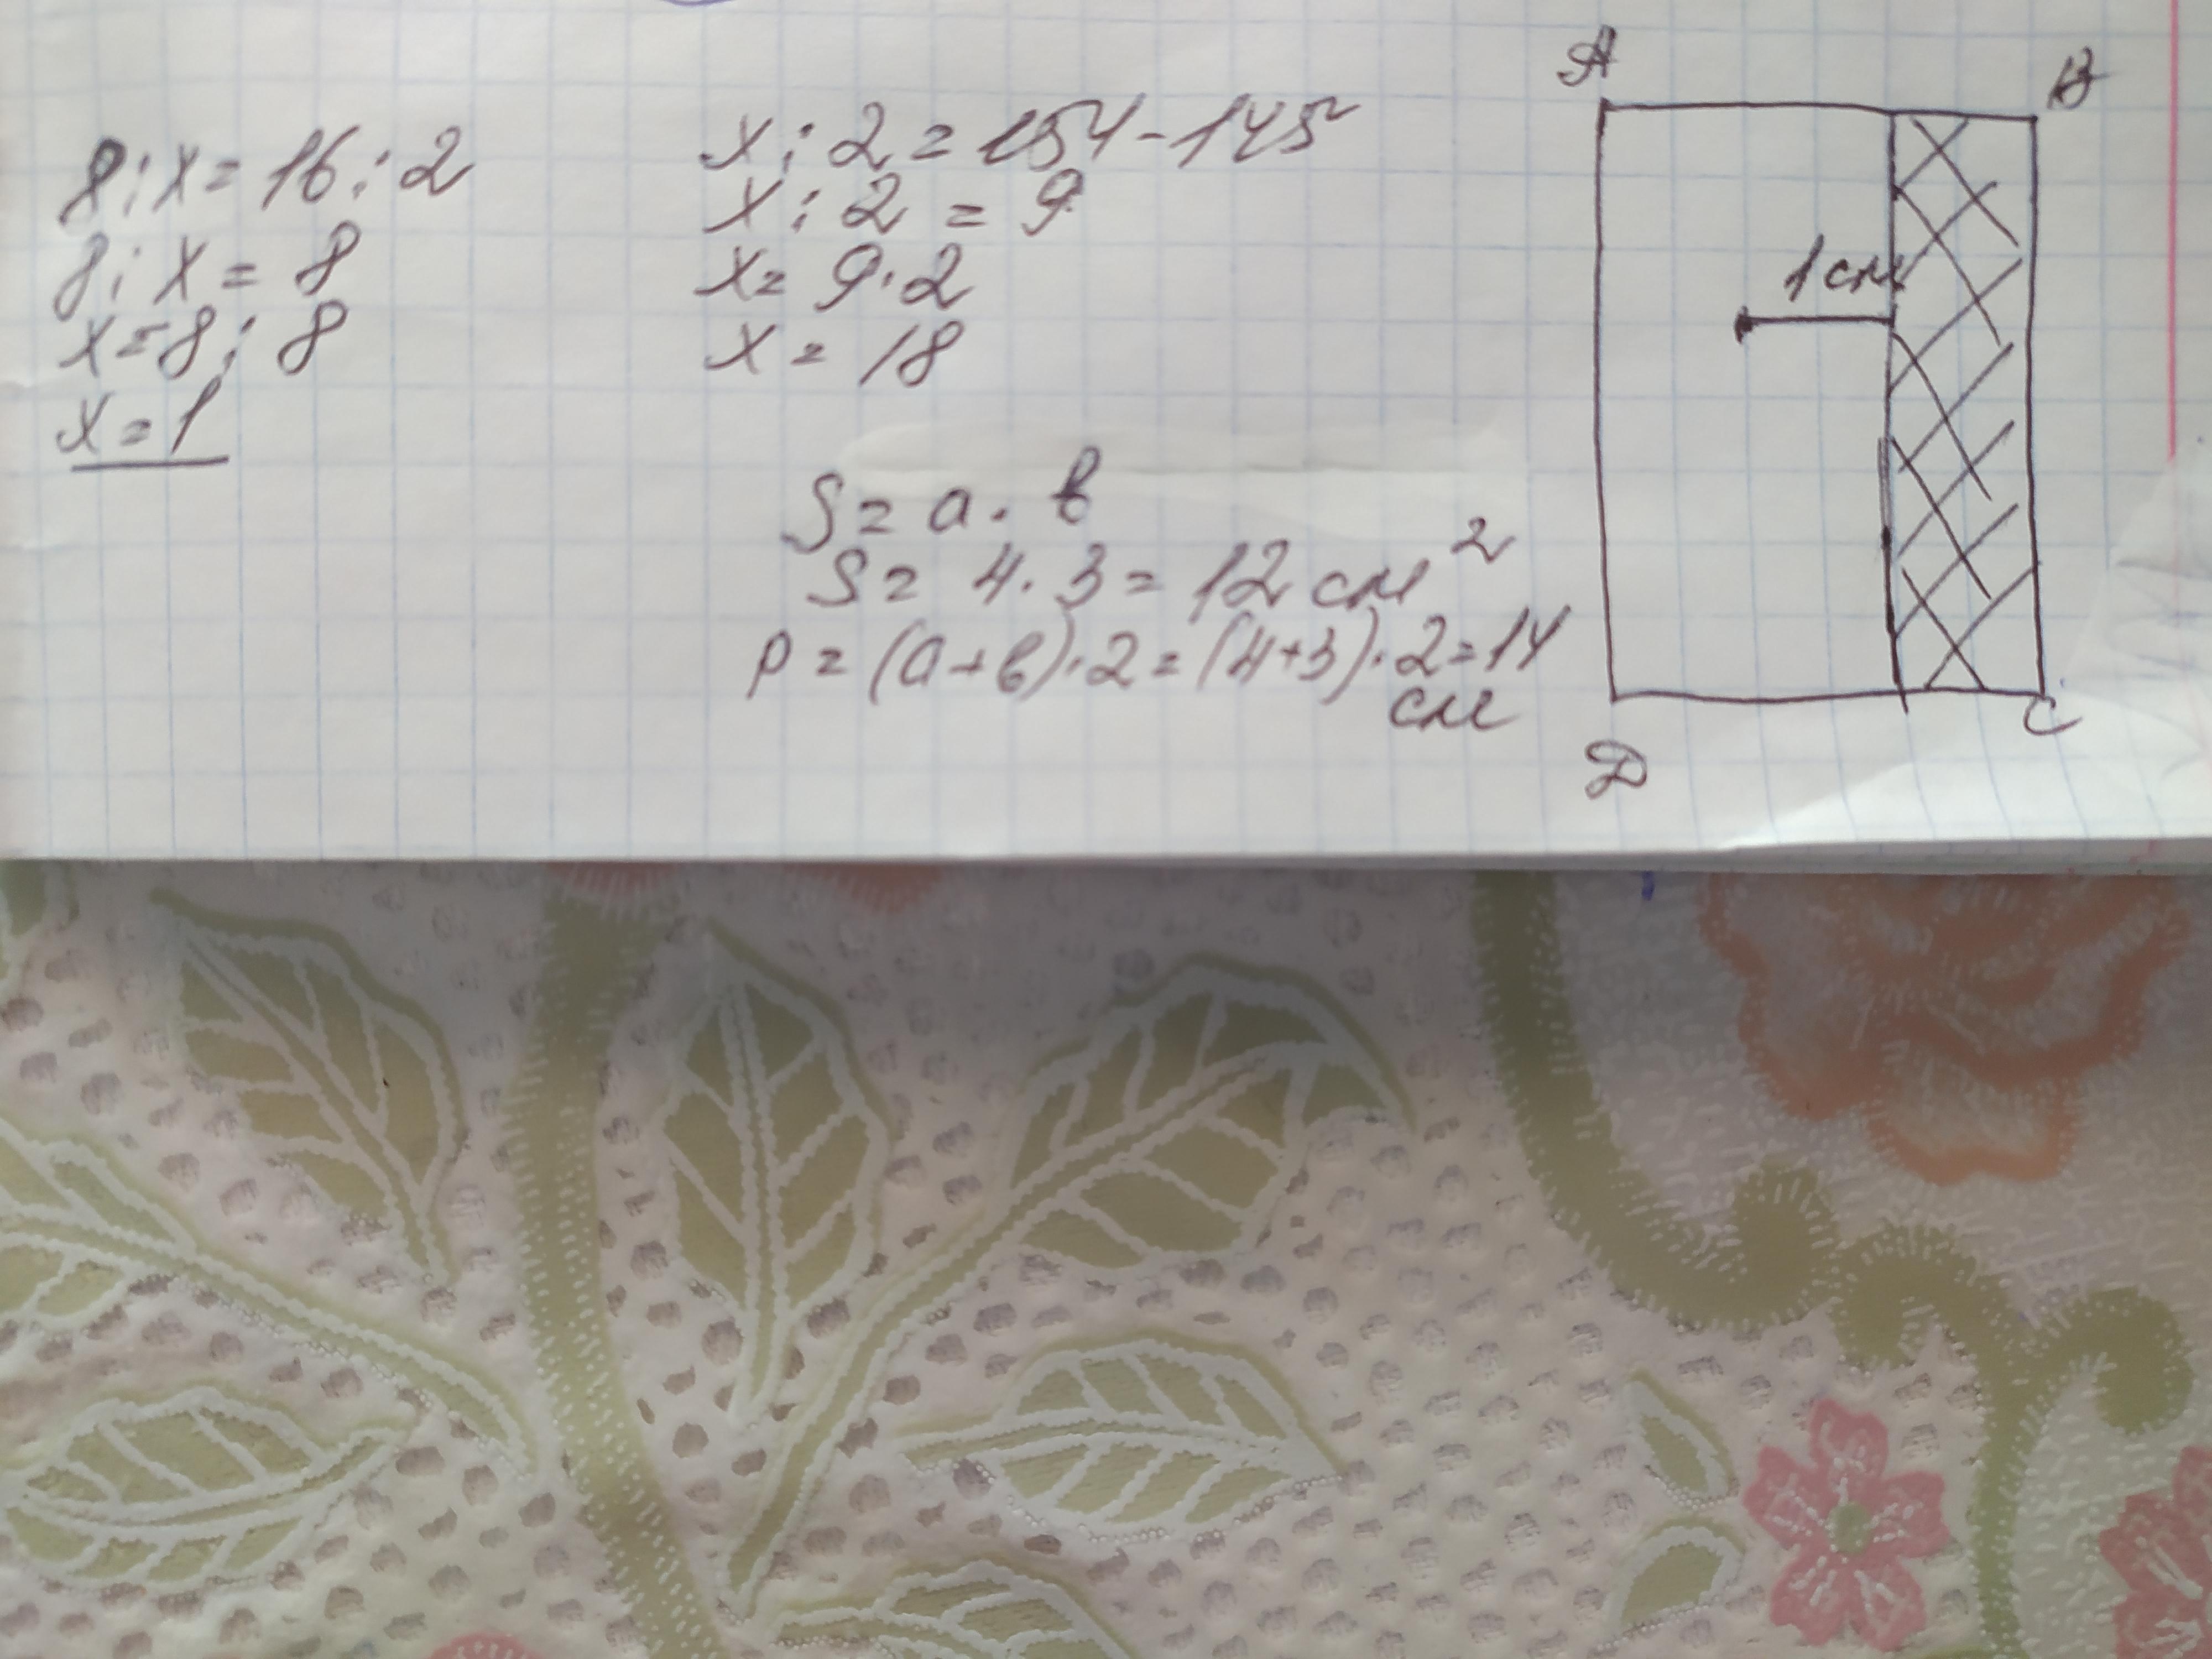 8 : x = 16 : 2
8 : x = 8
x = 8 : 8
x = 1
x : 2 = 154 - 145
x : 2 = 9
x = 9 · 2
x = 18
S = a · в
S = 4 · 3 = 12 см²
P = (a + в) · 2 = (4+3) · 2 = 14
см
А
В
1 см
С
Д